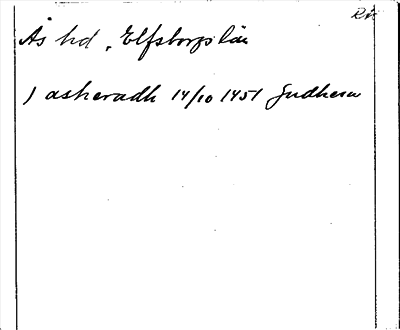 Rii
Ås hd, Elfsborgs län
) asheradh 14/10 1451 Gudhem